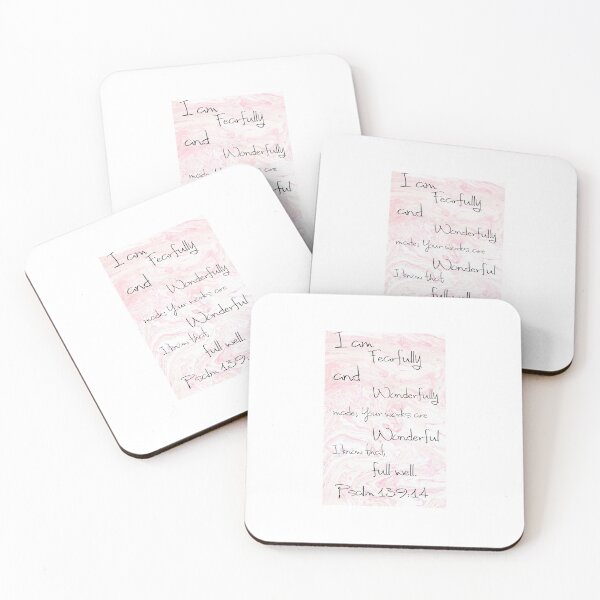 I am
Fearfully
and
Wonderfully
are
I am
Fearfully
and
Wonderfully
made; Your works are
Wonderful
I know that,
full well.
I am
Fearfully
and
Wonderfully
made; Your works are
Wonderful
I know that,
full well.
Psalm 139:
I am
Fearfully
and
Wonderfully
made; Your works are
Wonderful
I know that,
full well.
Psalm 139:14